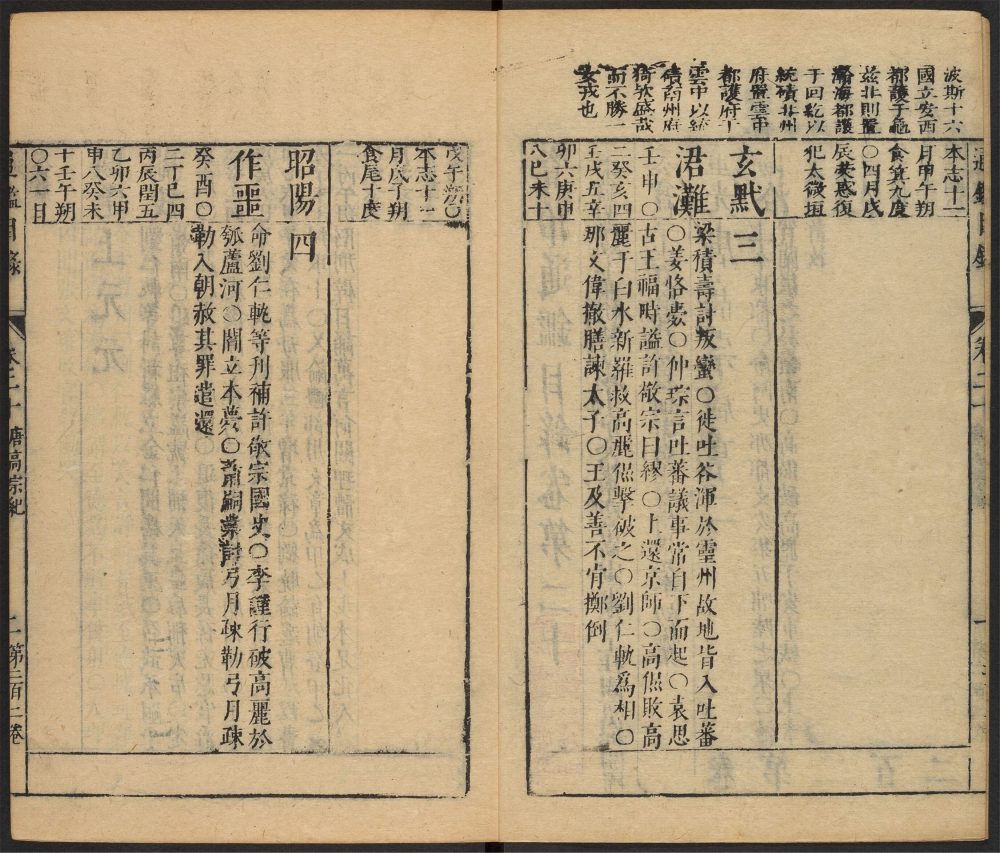 波斯十六
國立安西
都護于龜
玆北則置
瀚海都護
于回紇以
統磧北州
府置雲中
都護府于
雲中以統
磧南州府
猗欤盛哉
而不勝一
女戎也
本志十二
月甲午朔
食箕九度
〇四月戊
辰熒惑復
犯太微垣
玄黓三
涒灘
梁積壽討叛蠻〇徙吐谷渾於靈州故地皆入吐蕃
〇姜恪薨〇仲琮言吐蕃議事常自下而起〇袁思
古王福畤謚許敬宗曰繆〇上還京師〇高侃敗高
麗于白水新羅救高麗侃擊破之〇劉仁軌爲相〇
邢文偉撤膳諫太子〇王及善不肯擲倒
壬申〇
二癸亥四
壬戌五辛
卯六庚申
八己未十
戊午朔〇
本志十一
月戊子朔
食尾十度
昭陽四
作噩
命劉仁軌等刋補許敬宗國史〇李謹行破高麗於
瓠蘆河〇閻立本薨〇蕭嗣業討弓月疎勒弓月疎
勒入朝赦其罪遣還
癸酉〇
二丁巳四
丙辰閏五
乙卯六甲
申八癸未
十壬午朔
〇六一目
通鑑目錄
卷二十
唐高宗紀
二
第二百二卷